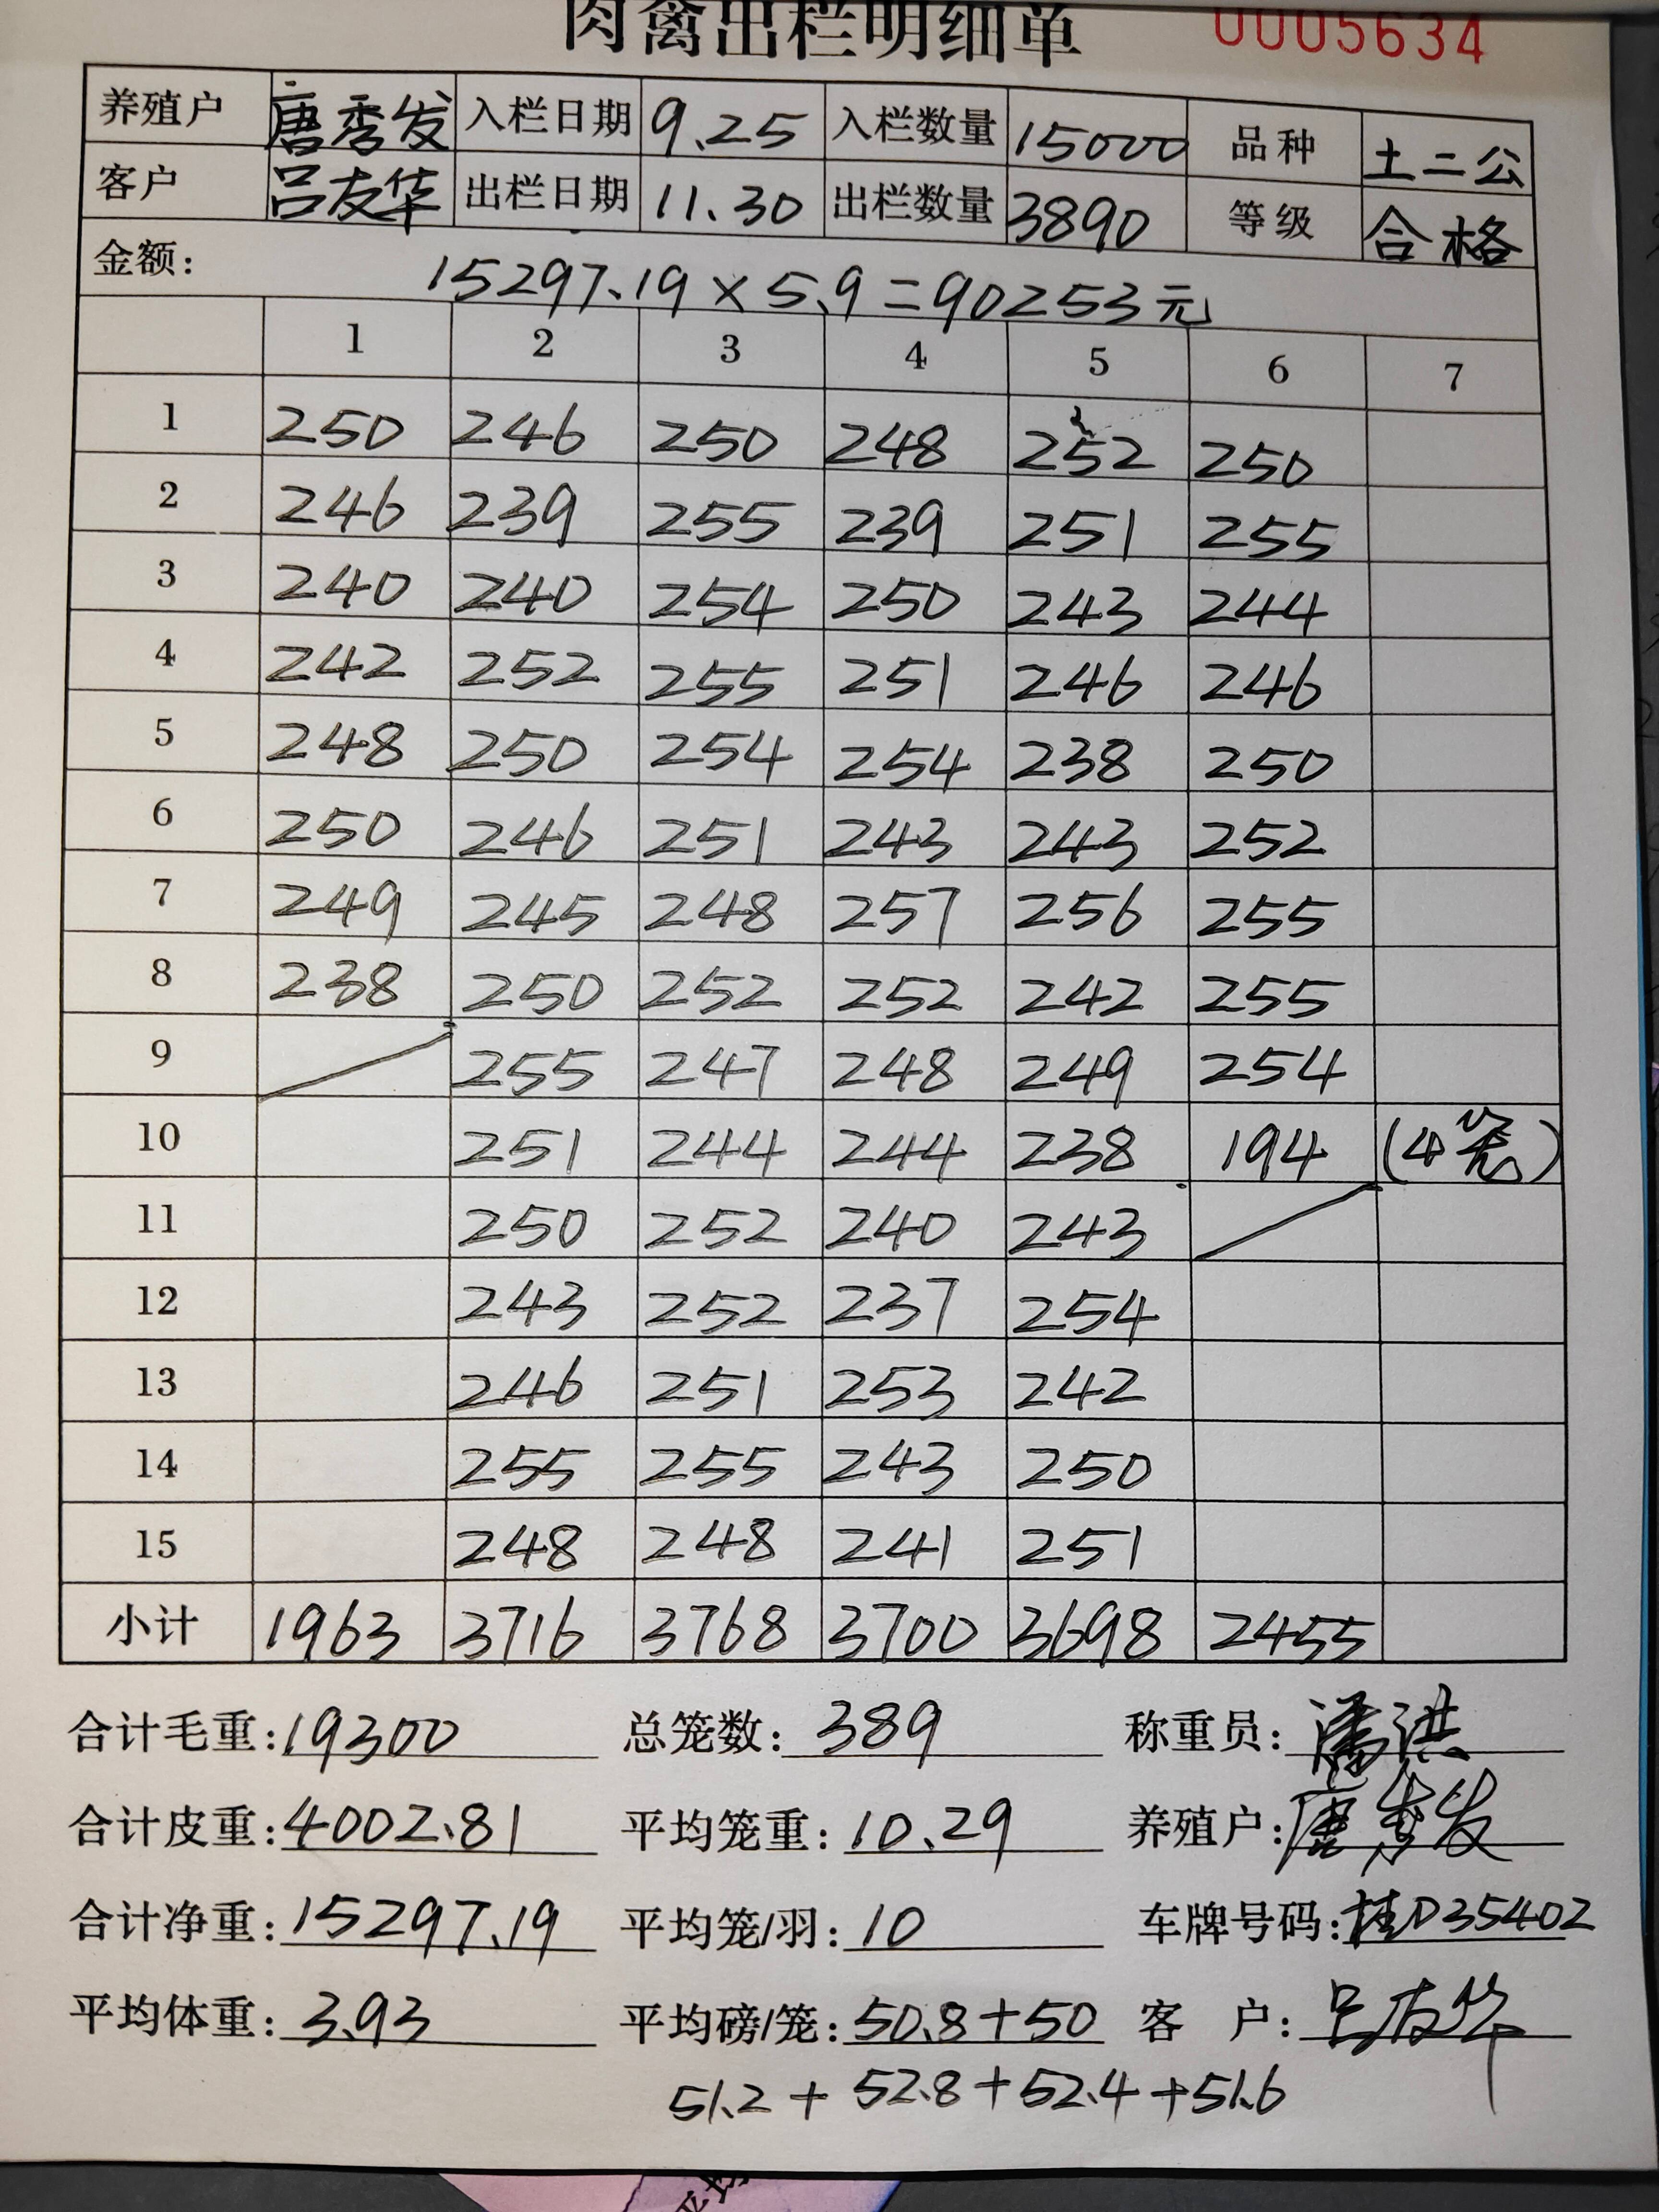 肉禽出栏明细单 0005634
养殖户 唐秀发 入栏日期 9.25 入栏数量 15000 品种 土二公
客户 吕友华 出栏日期 11.30 出栏数量 3890 等级 合格
金额: 15297.19×5.9=90253元
1 2 3 4 5 6 7
1 250 246 250 248 252 250
2 246 239 255 239 251 255
3 240 240 254 250 243 244
4 242 252 255 251 246 246
5 248 250 254 254 238 250
6 250 246 251 243 243 252
7 249 245 248 257 256 255
8 238 250 252 252 242 255
9 255 247 248 249 254
10 251 244 244 238 194 (4笼)
11 250 252 240 243
12 243 252 237 254
13 246 251 253 242
14 255 255 243 250
15 248 248 241 251
小计 1963 3716 3768 3700 3698 2455
合计毛重:19300 总笼数:389 称重员:潘洪
合计皮重:4002.81 平均笼重:10.29 养殖户:唐秀发
合计净重:15297.19 平均笼/羽:10 车牌号码:桂D35402
平均体重:3.93 平均磅/笼:50.8+50 客 户:吕友华
51.2+52.8+52.4+51.6